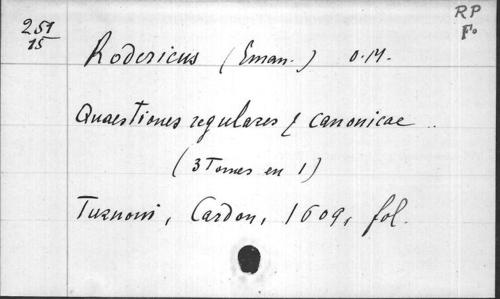 251
15
RP
Fo
Rodericus (Eman.) O.M.
Quaestiones regulares & canonicae ..
(3 Tomes en 1)
Turnoni, Cardon, 1609, fol.